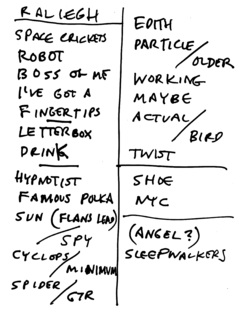 RALIEGH
SPACE CRICKETS
ROBOT
BOSS OF ME
I'VE GOT A
FINGERTIPS
LETTERBOX
DRINK
HYPNOTIST
FAMOUS POLKA
SUN (FLANS LEAD)
/SPY
CYCLOPS
/MINIMUM
SPIDER/
GTR
EDITH
PARTICLE
/OLDER
WORKING
MAYBE
ACTUAL
/BIRD
TWIST
SHOE
NYC
(ANGEL?)
SLEEPWALKERS